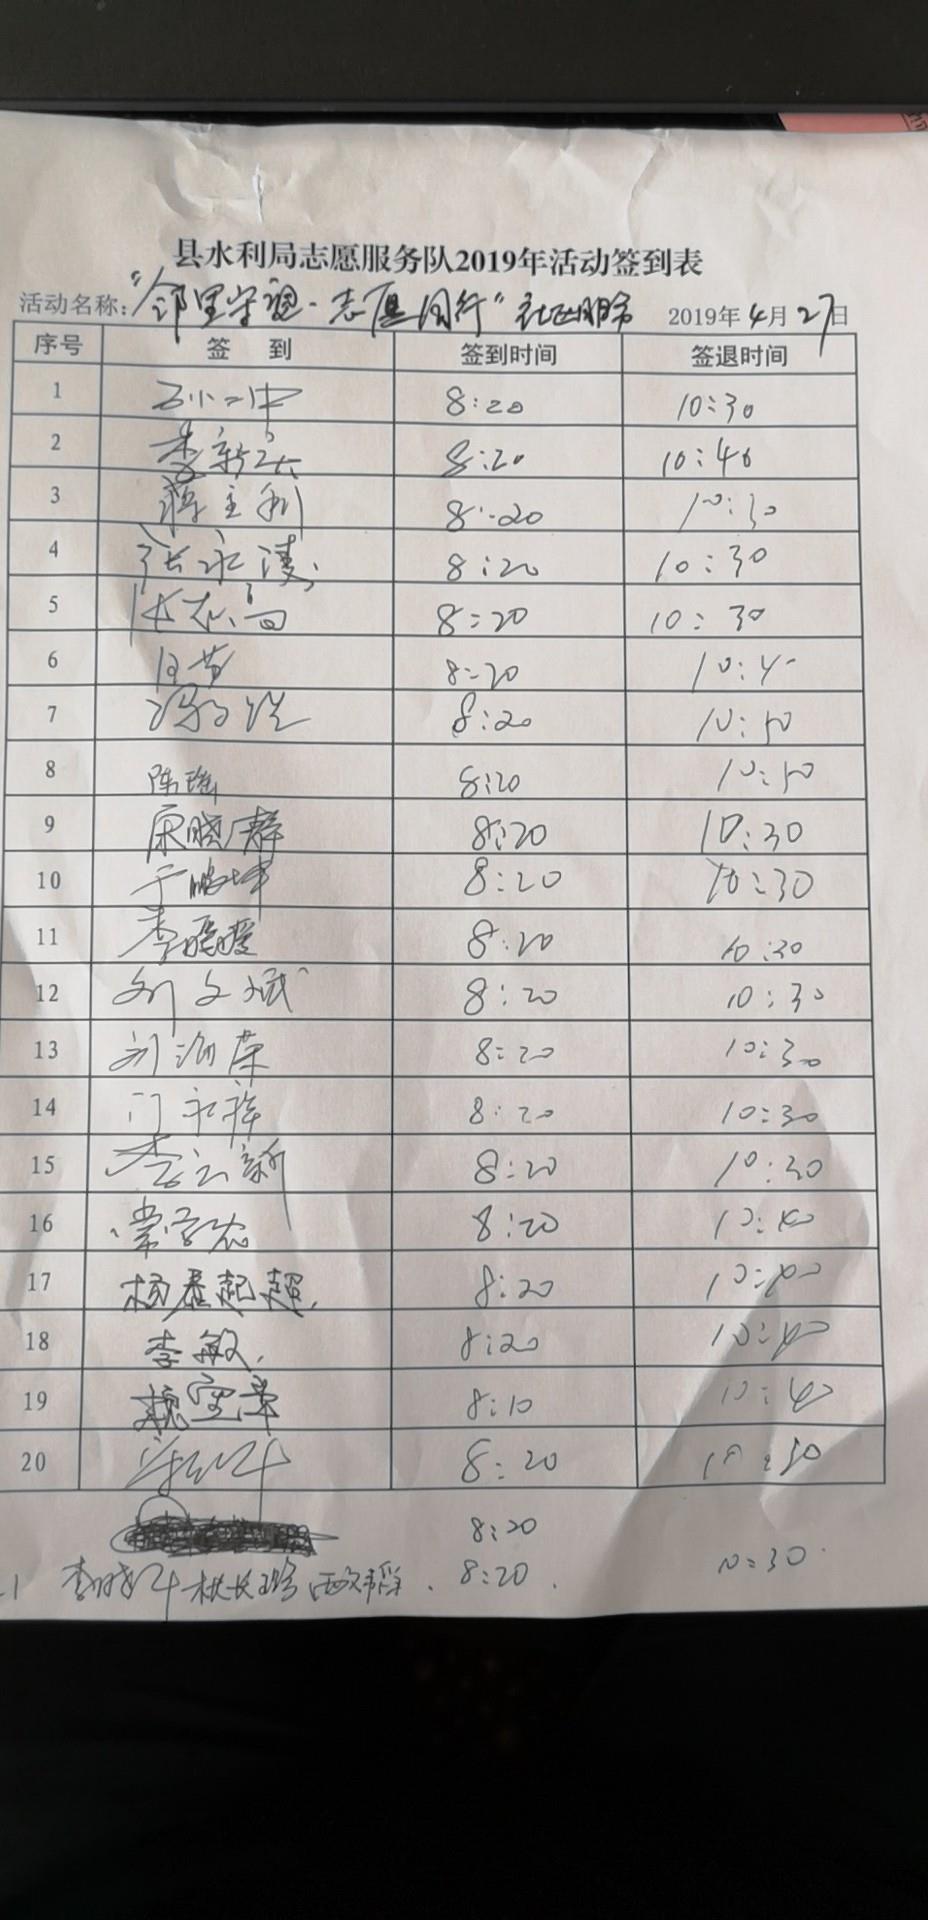 县水利局志愿服务队2019年活动签到表
活动名称："邻里守望·志愿同行"社区服务 2019年4月27日
序号 签到 签到时间 签退时间
1 8:20 10:30
2 李新 8:20 10:40
3 蒋主利 8:20 10:30
4 张永凌 8:20 10:30
5 张志高 8:20 10:30
6 8:20
7 8:20 10:50
8 陈瑞 8:20 10:50
9 康晓静 8:20 10:30
10 于鹏坤 8:20 10:30
11 李暖暖 8:20 10:30
12 刘文斌 8:20 10:30
13 刘海荣 8:20 10:30
14 门永祥 8:20 10:30
15 李云新 8:20 10:30
16 常学宏 8:20 10:40
17 杨起超 8:20 10:40
18 李敏 8:20 10:40
19 魏宝华 8:10 10:40
20 8:20 10:30
8:20
李晓 8:20 10:30